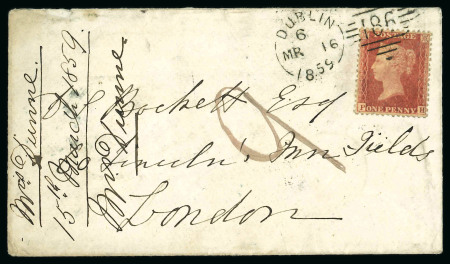 DUBLIN
6
MR 16
1859
186
P ONE PENNY H
Bockett Esq
Lincoln's Inn Fields
London
Mrs Dunne.
15th March 1859.
Mrs Dunne.